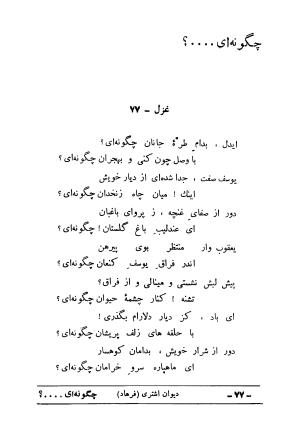 چگونه‌ای....؟
غزل - ۷۷
ایدل، بدام طرهٔ جانان چگونه‌ای؟
با وصل چون کنی و بهجران چگونه‌ای؟
یوسف صفت، جدا شده‌ای از دیار خویش
اینك! میان چاه زنخدان چگونه‌ای؟
دور از صفای غنچه، ز پروای باغبان
ای عندلیب باغ گلستان! چگونه‌ای؟
یعقوب وار منتظر بوی پیرهن
اندر فراق یوسف کنعان چگونه‌ای؟
پیش لبش نشستی و مینالی و از فراق؟
تشنه! کنار چشمهٔ حیوان چگونه‌ای؟
ای باد، کز دیار دلارام بگذری!
با حلقه های زلف پریشان چگونه‌ای؟
دور از شرار خویش، بدامان کوهسار
ای ماهپاره سرو خرامان چگونه‌ای؟
چگونه‌ای....؟ دیوان اشتری (فرهاد) - ۷۷ -